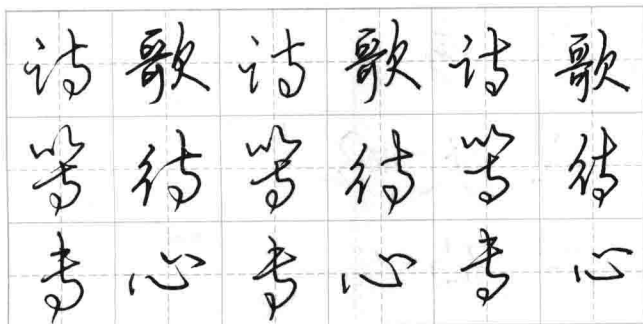 诗歌诗歌诗歌
等待等待等待
专心专心专心